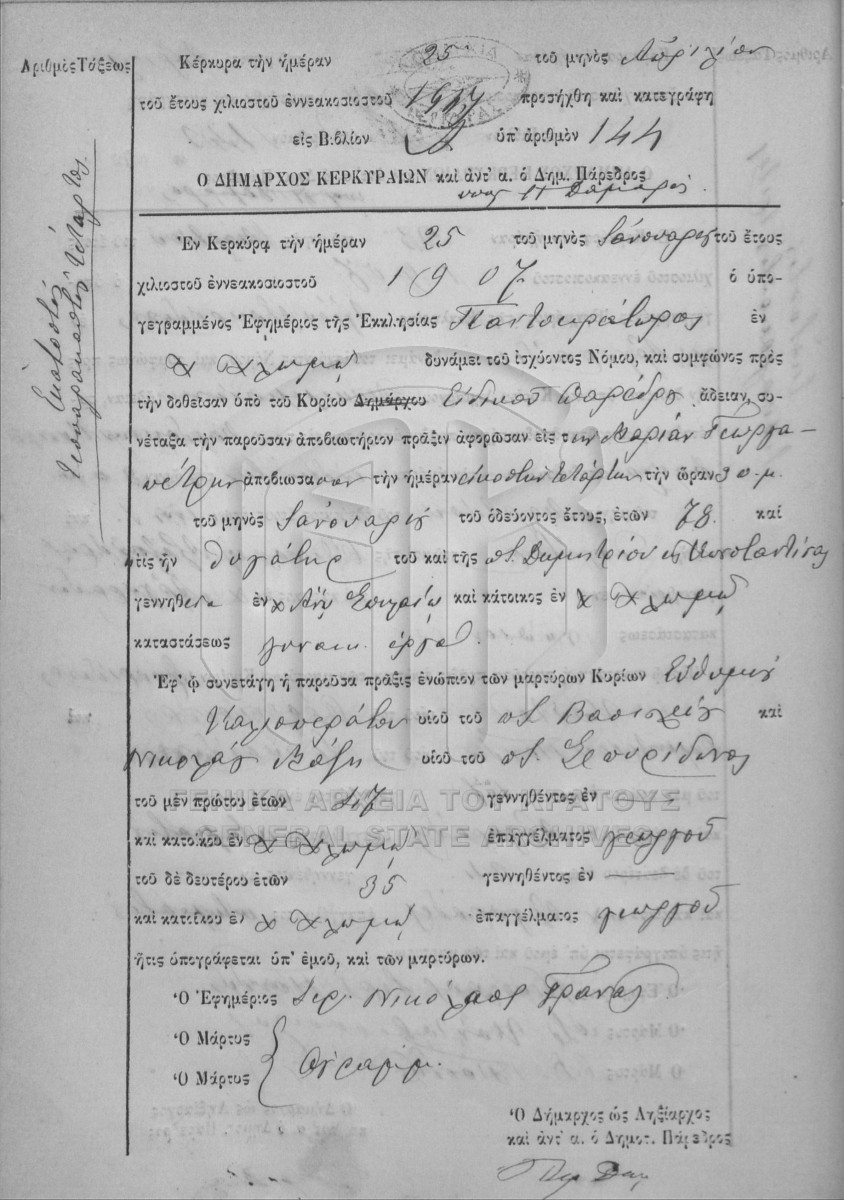 Ἀριθμὸς Τάξεως
Ἑκατοστὴ
τεσσαρακοστὴ τετάρτη
Κέρκυρα τὴν ἡμέραν 25 τοῦ μηνὸς Ἀπριλίου
τοῦ ἔτους χιλιοστοῦ ἐννεακοσιοστοῦ 1907 προσήχθη καὶ κατεγράφη
εἰς Βιβλίον ὑπ' ἀριθμὸν 144
Ο ΔΗΜΑΡΧΟΣ ΚΕΡΚΥΡΑΙΩΝ καὶ ἀντ' α. ὁ Δημ. Πάρεδρος
Ἐν Κερκύρᾳ τὴν ἡμέραν 25 τοῦ μηνὸς Ἰανουαρίου τοῦ ἔτους
χιλιοστοῦ ἐννεακοσιοστοῦ 1907 ὁ ὑπο-
γεγραμμένος Ἐφημέριος τῆς Ἐκκλησίας Παντοκράτωρος ἐν
χ Χλωμῷ δυνάμει τοῦ ἰσχύοντος Νόμου, καὶ συμφώνως πρὸς
τὴν δοθεῖσαν ὑπὸ τοῦ Κυρίου Δημάρχου Εἰδικοῦ Παρέδρου ἄδειαν, συ-
νέταξα τὴν παροῦσαν ἀποβιωτήριον πρᾶξιν ἀφορῶσαν εἰς τὴν Μαρίαν Γεωργα-
πέτρη ἀποβιώσασαν τὴν ἡμέραν εἰκοστὴν τετάρτην τὴν ὥραν 3 π.μ.
τοῦ μηνὸς Ἰανουαρίου τοῦ ὁδεύοντος ἔτους, ἐτῶν 78 καὶ
ἥτις ἦν θυγάτηρ τοῦ καὶ τῆς ποτ. Δημητρίου κ Κωσταντίνας
γεννηθεῖσα ἐν χ Ἁγ. καὶ κάτοικος ἐν χ Χλωμῷ
καταστάσεως γυναικ. ἔργα.
Ἐφ' ᾧ συνετάγη ἡ παροῦσα πρᾶξις ἐνώπιον τῶν μαρτύρων Κυρίων Εὐθυμίου
υἱοῦ τοῦ ποτ. Βασιλείου καὶ
Νικολάου υἱοῦ τοῦ ποτ. Σπυρίδωνος
τοῦ μὲν πρώτου ἐτῶν 47 γεννηθέντος ἐν —
καὶ κατοίκου ἐν χ Χλωμῷ ἐπαγγέλματος γεωργοῦ
τοῦ δὲ δευτέρου ἐτῶν 35 γεννηθέντος ἐν —
καὶ κατοίκου ἐν χ Χλωμῷ ἐπαγγέλματος γεωργοῦ
ἥτις ὑπογράφεται ὑπ' ἐμοῦ, καὶ τῶν μαρτύρων.
Ὁ Ἐφημέριος Ἱερ. Νικόλαος
Ὁ Μάρτυς
Ὁ Μάρτυς
Ὁ Δήμαρχος ὡς Ληξίαρχος
καὶ ἀντ' α. ὁ Δημοτ. Πάρεδρος
ΓΕΝΙΚΑ ΑΡΧΕΙΑ ΤΟΥ ΚΡΑΤΟΥΣ
GENERAL STATE ARCHIVES